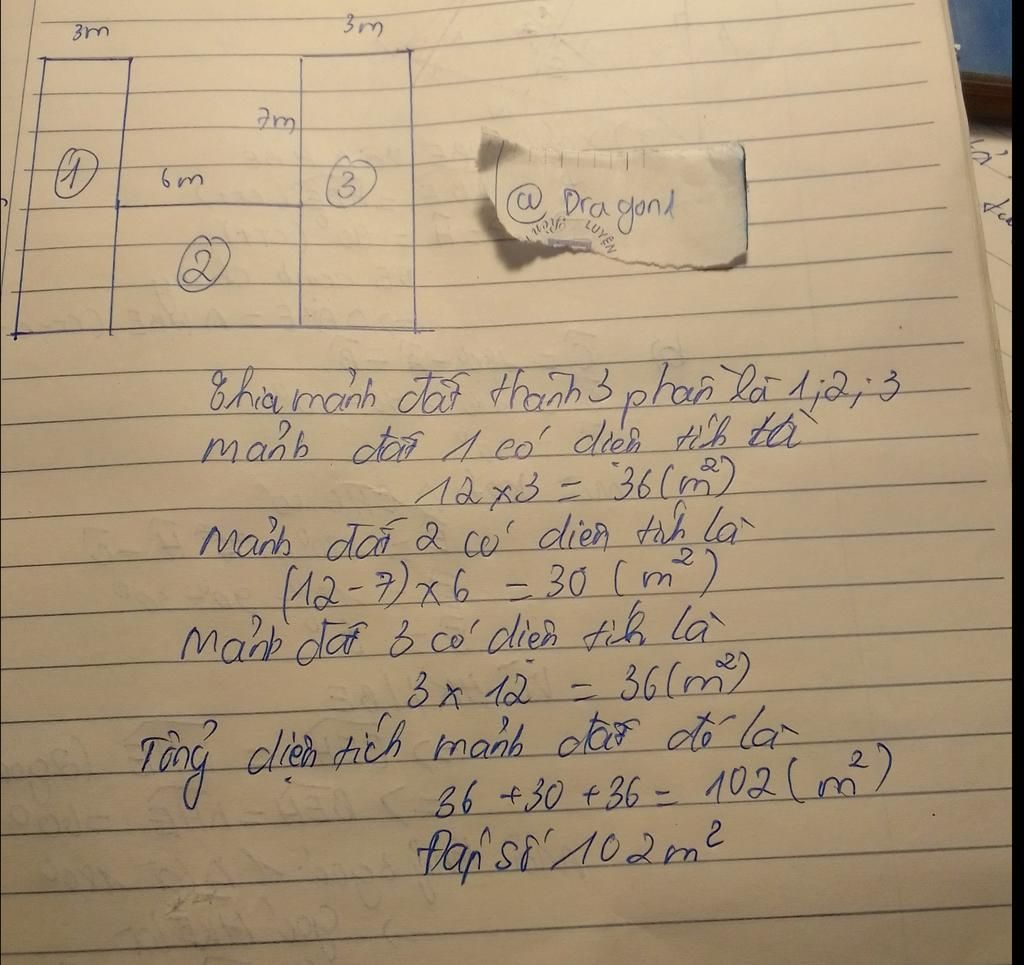 3m 3m
7m
1 6m 3
2
@ Dragon1
LUYỆN
Chia mảnh đất thành 3 phần là 1; 2; 3
mảnh đất 1 có diện tích là
12 x 3 = 36 (m²)
Mảnh đất 2 có diện tích là
(12 - 7) x 6 = 30 (m²)
Mảnh đất 3 có diện tích là
3 x 12 = 36 (m²)
Tổng diện tích mảnh đất đó là
36 + 30 + 36 = 102 (m²)
Đáp số 102m²